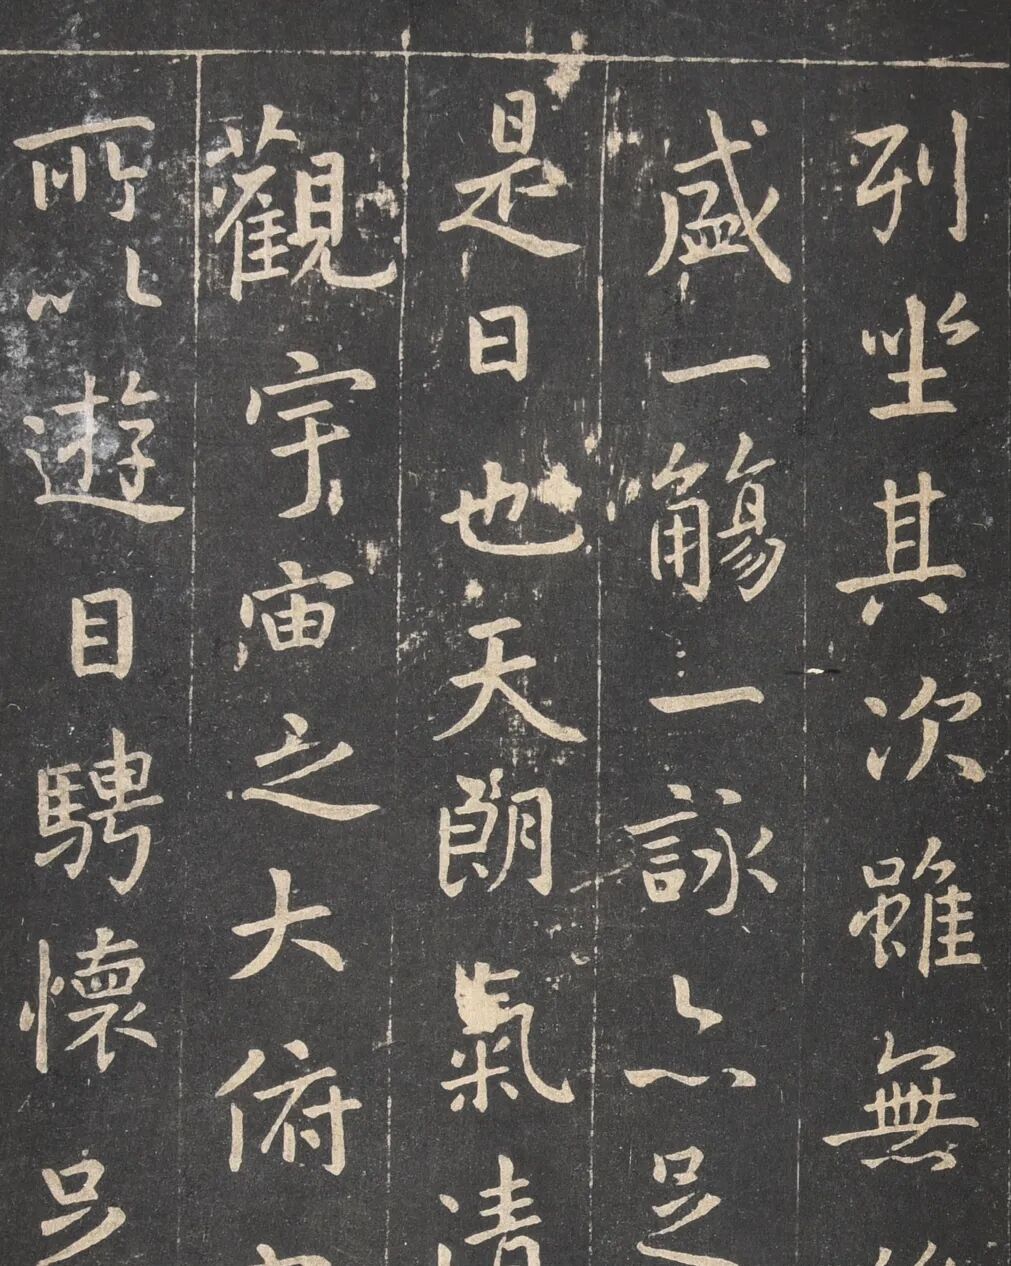 列坐其次雖無
盛一觴一詠亦足
是日也天朗氣清
觀宇宙之大俯
所以遊目騁懷足